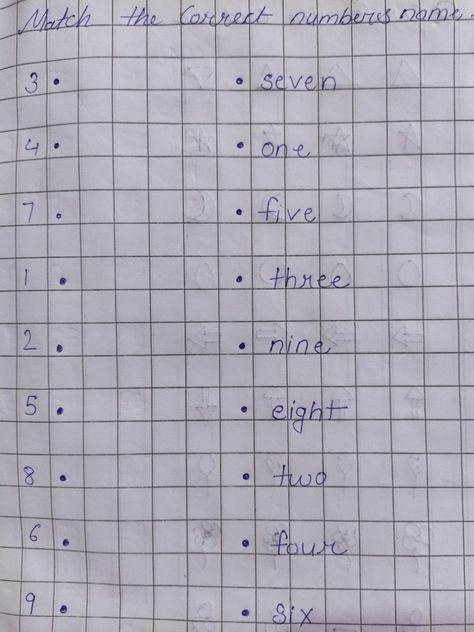 Match the Correct numbers name.
3 • • seven
4 • • one
7 • • five
1 • • three
2 • • nine
5 • • eight
8 • • two
6 • • four
9 • • six